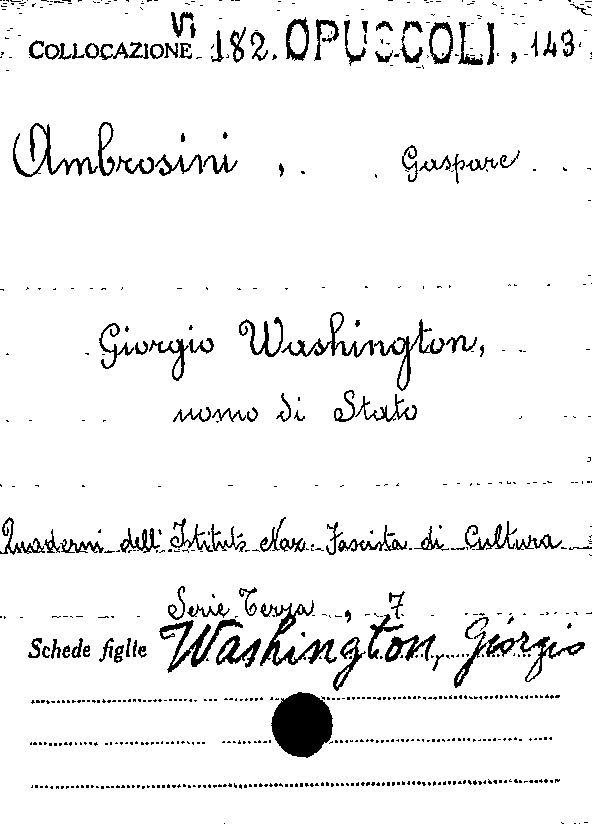 VI
COLLOCAZIONE 182. OPUSCOLI, 143
Ambrosini, Gaspare
Giorgio Washington,
uomo di Stato
Quaderni dell'Istituto Naz. Fascista di Cultura
Serie Terza, 7
Schede figlie Washington, Giorgio